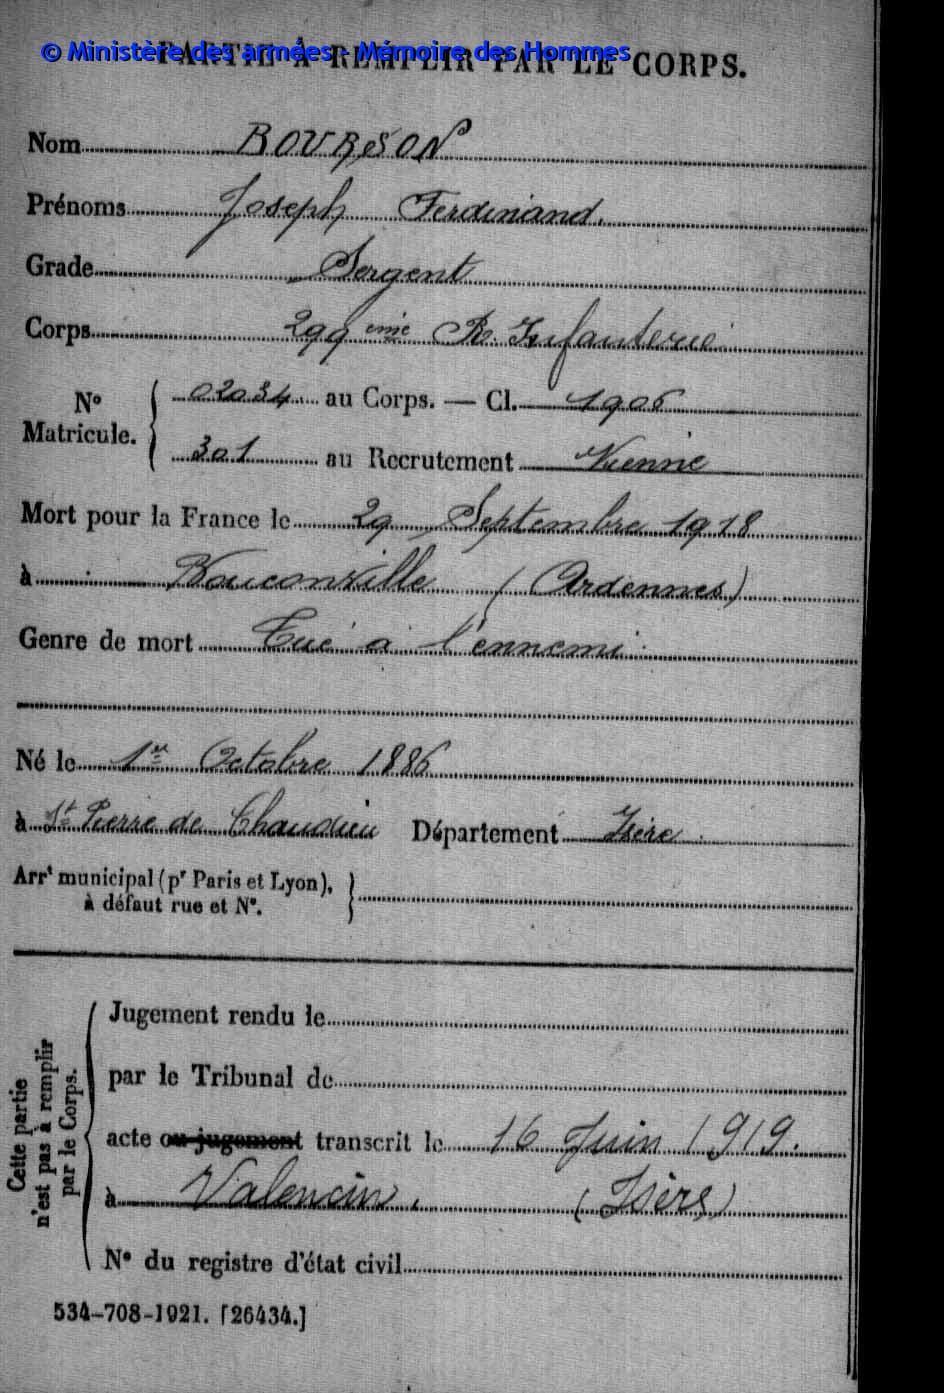 © Ministère des armées - Mémoire des Hommes
PARTIE À REMPLIR PAR LE CORPS.
Nom BOURSON
Prénoms Joseph Ferdinand.
Grade Sergent
Corps 299eme R. Infanterie
No Matricule. 02034 au Corps. — Cl. 1906
301 au Recrutement Vienne
Mort pour la France le 29 Septembre 1918
à Bouconville (Ardennes)
Genre de mort Tué à l'ennemi
Né le 1er Octobre 1886
à St Pierre de Chandieu Département Isère
Arrt municipal (pr Paris et Lyon),
à défaut rue et N°.
Cette partie
n'est pas à remplir
par le Corps.
Jugement rendu le
par le Tribunal de
acte ou jugement transcrit le 16 Juin 1919.
à Valencin, (Isère)
N° du registre d'état civil
534-708-1921. [26434.]